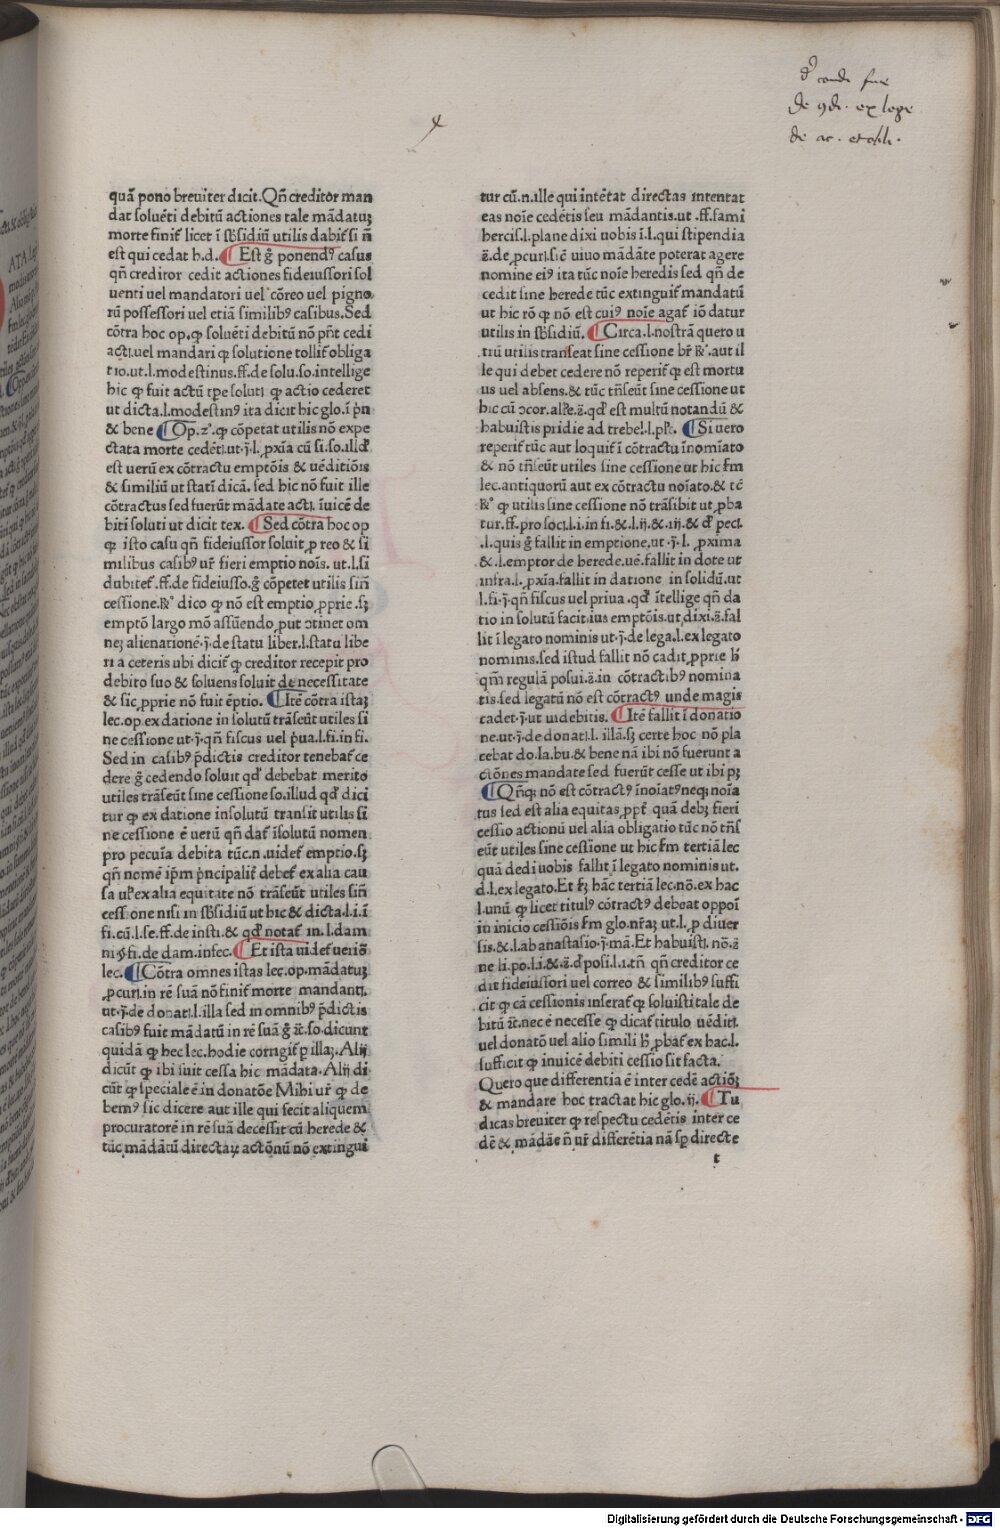 quā pono breuiter dicit. Qñ creditor man
dat soluēti debitū actiones tale mādatuꝫ
morte finit᷑ licet ī sb̄sidiū utilis dabit᷑ si ñ
est qui cedat h.d. ¶ Est g̊ ponendꝰ casus
qñ creditor cedit actiones fideiussori sol
uenti uel mandatori uel cōreo uel pigno
rū possessori uel etiā similibꝰ casibus. Sed
cōtra hoc op. ꝙ soluēti debitū nō pn̄t cedi
acti. uel mandari ꝙ solutione tollit᷑ obliga
tio. ut. l. modestinus. ff. de solu. so. intellige
hic ꝙ fuit actū tpe soluti ꝙ actio cederet
ut dicta. l. modestinꝰ ita dicit hic glo. ī pn̄
& bene ¶ Op. 2ͦ. ꝙ cōpetat utilis nō expe
ctata morte cedēti. ut. j. l. pxīa cū si. so. illd̓
est uerū ex cōtractu emptōis & uēditiōis
& similiū ut statī dicā. sed hic nō fuit ille
cōtractus sed fuerūt mādate acti. īuicē de
biti soluti ut dicit tex. ¶ Sed cōtra hoc op
ꝙ isto casu qñ fideiussor soluit p reo & si
milibus casibꝰ ur̄ fieri emptio nois. ut. l. si
dubitet᷑. ff. de fideiusso. g̊ cōpetet utilis sin̄
cessione. R̊ dico ꝙ nō est emptio pprie. sꝫ
emptō largo mō assūendo, put ↄtinet om
neꝫ alienationē. j. de statu liber. l. statu libe
ri a ceteris ubi dicit᷑ ꝙ creditor recepit pro
debito suo & soluens soluit de necessitate
& sic pprie nō fuit ēptio. ¶ Itē cōtra istaꝫ
lec. op. ex datione in solutū trāseūt utiles si
ne cessione ut. j. qñ fiscus uel pua. l. fi. in fi.
Sed in casibꝰ pdictis creditor tenebat᷑ ce
dere g̊ cedendo soluit qd̓ debebat merito
utiles trāseūt sine cessione so. illud qd̓ dici
tur ꝙ ex datione insolutū transit utilis si
ne cessione ē uerū qñ dat᷑ īsolutū nomen
pro pecuīa debita tūc. n. uidet᷑ emptio. sꝫ
qñ nomē ipm pncipalit᷑ debet᷑ ex alia cau
sa ul̓ ex alia equitate nō trāseūt utiles sin̄
cessione nisi in sb̄sidiū ut hic & dicta. l. i. ī
fi. cū. l. se. ff. de insti. & qd̓ notat᷑ in. l. dam
ni §. fi. de dam. infec. ¶ Et ista uidet᷑ uerio
lec. ¶ Cōtra omnes istas lec. op. mādatuꝫ
pcuri. in rē suā nō finit᷑ morte mandanti.
ut. j. de donati. l. illa sed in omnibꝰ pdictis
casibꝰ fuit mādatū in rē suā g̊ ā̈t. so. dicunt
quidā ꝙ hec lec. hodie corrigit᷑ p illaꝫ. Alij
dicūt ꝙ ibi fuit cessa hic mādata. Alij di
cūt ꝙ speciale ē in donatōe Mihi ur̄ ꝙ de
bemꝰ sic dicere aut ille qui fecit aliquem
procuratorē in rē suā decessit cū herede &
tūc mādatū directaꝝ actōnū nō extingui
d̓ condi fur
De ↄdi. ex lege
de ac. et obli.
tur cū. n. ille qui intētat directas intentat
eas noīe cedētis seu mādantis. ut. ff. fami
hercis. l. plane dixi uobis ī. l. qui stipendia
ā̈. de, pcuri. sic̄ uiuo mādāte poterat agere
nomine eiꝰ ita tūc noīe heredis sed qñ de
cedit sine herede tūc extinguit᷑ mandatū
ut hic rō ꝙ nō est cuiꝰ noīe agat᷑ iō datur
utilis in sb̄sidiū. ¶ Circa. l. nostrā quero u
trū utilis transeat sine cessione br̄ R̊. aut il
le qui debet cedere nō reperit᷑ ꝙ est mortu
us uel absens. & tūc tn̄seūt sine cessione ut
hic cū ↄcor. allꝫe. ā̈. qd̓ est multū notandū &
habuistis pridie ad trebel. l. pꝫ. ¶ Si uero
reperit᷑ tūc aut loquit᷑ ī cōtractu īnomīato
& nō tn̄seūt utiles sine cessione ut hic fm̄
lec. antiquorū aut ex cōtractu noīato. & tē
R̊ ꝙ utilis sine cessione nō trāsibit ut pba
tur. ff. pro soci. l. i. in fi. & l. ij. & .iij. & d̓ peci.
.l. quis g̊ fallit in emptione, ut. j. l. pxima
& .l. emptor de herede. uē. fallit in dote ut
infra. l. pxīa. fallit in datione in solidū. ut
.l. fi. j. qñ fiscus uel priua. qd̓ ītellige qñ da
tio in solutū facit ius emptōis. ut, dixi. ā̈. fal
lit ī legato nominis ut. j. de lega. l. ex legato
nominis. sed istud fallit nō cadit pprie h̄
qm̄ regulā posui. ā̈. in cōtractibꝰ nomina
tis. sed legatū nō est cōtractꝰ unde magis
cadet. j. ut uidebitis. ¶ Itē fallit ī donatio
ne. ut. j. de donati. l. illā. sꝫ certe hoc nō pla
cebat do. ia. bu. & bene nā ibi nō fuerunt a
ctiōnes mandate sed fuerūt cesse ut ibi pꝫ
¶ Qñqꝫ nō est cōtractꝰ īnoīatꝰ neqꝫ noīa
tus sed est alia equitas, ppt᷑ quā debꝫ fieri
cessio actionū uel alia obligatio tūc nō tn̄s
eūt utiles sine cessione ut hic fm̄ tertiā lec
quā dedi uobis fallit ī legato nominis ut.
d. l. ex legato. Et fꝫ hāc tertiā lec. nō. ex hac
l. unū ꝙ licet titulꝰ cōtractꝰ debeat oppoī
in inicio cessiōis fm̄ glo. nr̄aꝫ ut. l. p diuer
sis. & .l. ab anastasio. j. mā. Et habuisti. nō. ā̈
ne li. po. l. i. & .ā̈. d̓ posi. l. i. tn̄ qñ creditor ce
dit fideiussori uel correo & similibꝰ suffi
cit ꝙ cā cessionis inserat᷑ ꝙ soluisti tale de
bitū ā̈t. nec ē necesse ꝙ dicat᷑ titulo uēditi.
uel donatō uel alio simili h̄ pbat᷑ ex hac. l.
sufficit ꝙ inuicē debiti cessio sit facta.
Quero que differentia ē inter cedē actiōꝫ
& mandare hoc tractat hic glo. ij. ¶ Tu
dicas breuiter ꝙ respectu cedētis inter ce
dē & mādāe ñ ur̄ differētia nā sp directe
t
Digitalisierung gefördert durch die Deutsche Forschungsgemeinschaft - DFG